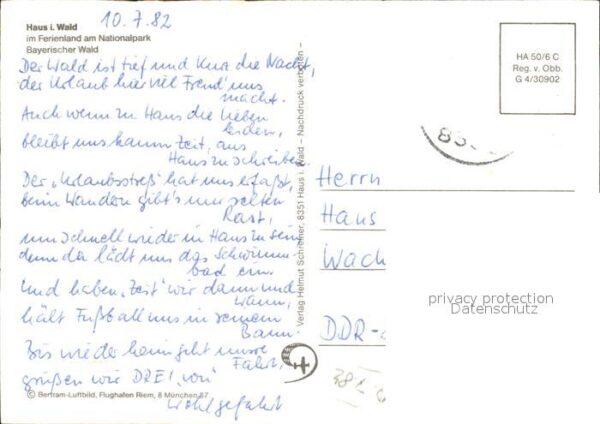 Haus i. Wald
im Ferienland am Nationalpark
Bayerischer Wald
10.7.82
Der Wald ist tief und kurz die Nacht,
der Urlaub hier viel Freud' uns
macht.
Auch wenn zu Haus die Lieben
leiden,
bleibt uns kaum Zeit, aus
Haus zu schreiben.
Der „Urlaubsstreß" hat uns erfaßt,
beim Wandern gibt's nur selten
Rast,
um schnell wieder in Haus zu sein
denn da lädt uns das Schwimm-
bad ein.
Und haben „Zeit" wir dann und
wann,
hält Fußball uns in seinem
Bann.
Bis wieder heim geht unsre
Fahrt,
grüßen wir DREI „von"
Wohlgefahrt
© Bertram-Luftbild, Flughafen Riem, 8 München 87
Verlag Helmut Schreiner, 8351 Haus i. Wald – Nachdruck verboten –
HA 50/6 C
Reg. v. Obb.
G 4/30902
Herrn
Hans
Wach
DDR-
privacy protection
Datenschutz